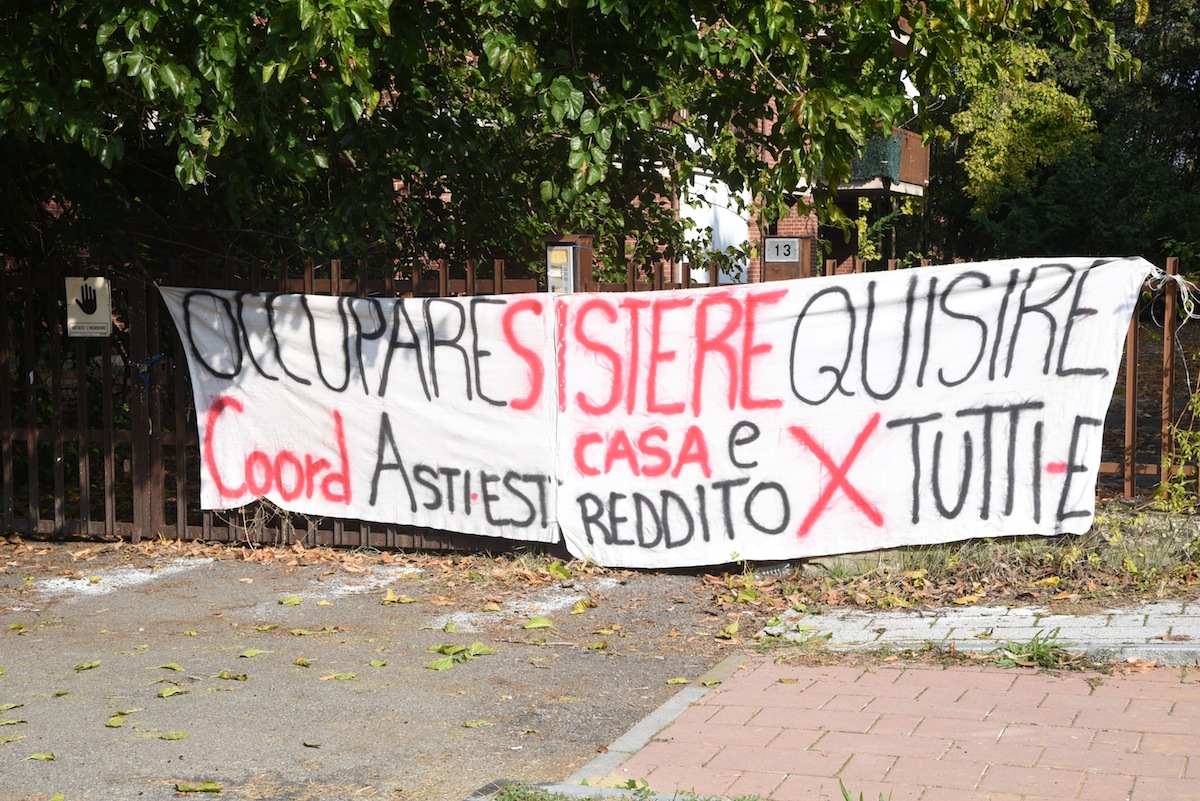 13
VIETATO L'INGRESSO
OCCUPARESISTEREQUISIRE
Coord ASTI-EST
CASA e
REDDITO
X TUTTI-E